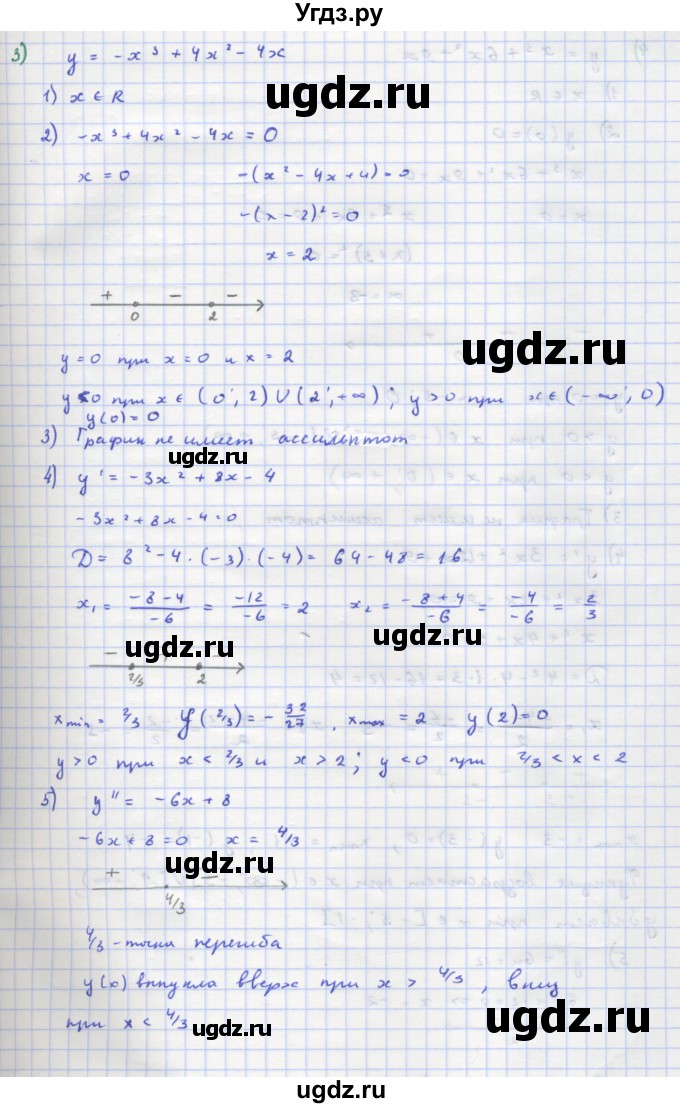 Угдз.ру
3) y = -x³ + 4x² - 4x
1) x ∈ R
ugdz.ru
2) -x³ + 4x² - 4x = 0
x = 0 -(x² - 4x + 4) = 0
-(x - 2)² = 0
x = 2
+ - -
0 2
ugdz.ru
y = 0 при x = 0 и x = 2
y<0 при x ∈ (0; 2) ∪ (2; +∞); y > 0 при x ∈ (-∞; 0)
y(0) = 0
3) График не имеет ассимптот
ugdz.ru
4) y' = -3x² + 8x - 4
-3x² + 8x - 4 = 0
D = 8² - 4 · (-3) · (-4) = 64 - 48 = 16
ugdz.ru
x₁ = (-8 - 4)/(-6) = (-12)/(-6) = 2 x₂ = (-8 + 4)/(-6) = (-4)/(-6) = 2/3
ugdz.ru ugdz.ru
- + -
2/3 2
x min = 2/3 y(2/3) = -32/27, x max = 2 y(2) = 0
y > 0 при x < 2/3 и x > 2; y < 0 при 2/3 < x < 2
ugdz.ru
5) y'' = -6x + 8
-6x + 8 = 0 x = 4/3
ugdz.ru
+ -
4/3
4/3 - точка перегиба
ugdz.ru
y(x) выпукла вверх при x > 4/3, вниз
при x < 4/3
ugdz.ru
ugdz.ru